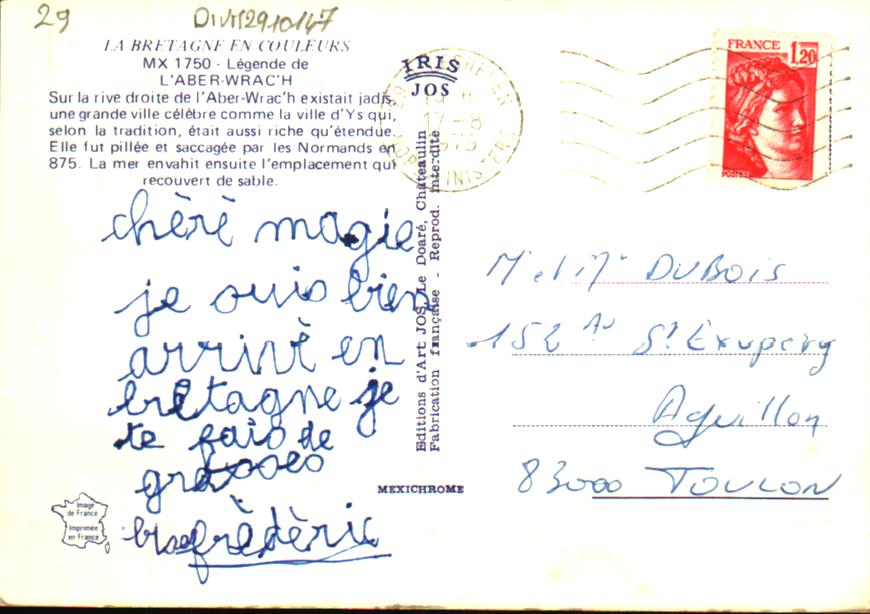 29
LA BRETAGNE EN COULEURS
MX 1750 - Légende de
L'ABER-WRAC'H
Sur la rive droite de l'Aber-Wrac'h existait jadis
une grande ville célèbre comme la ville d'Ys qui,
selon la tradition, était aussi riche qu'étendue.
Elle fut pillée et saccagée par les Normands en
875. La mer envahit ensuite l'emplacement qui
recouvert de sable.
chèrè magie
je suis bien
arrivè en
brètagne je
te fais de
grosses
bise frèdèric
Image
de France
Imprimée
en France
IRIS
JOS
Editions d'Art JOS, Le Doaré, Chateaulin
Fabrication française - Reprod. interdite
MEXICHROME
17-8
1979
FINISTERE
FRANCE 1,20
POSTES
M et Mr DUBOIS
152 Av St Exupery
Aguillon
83000 TOULON